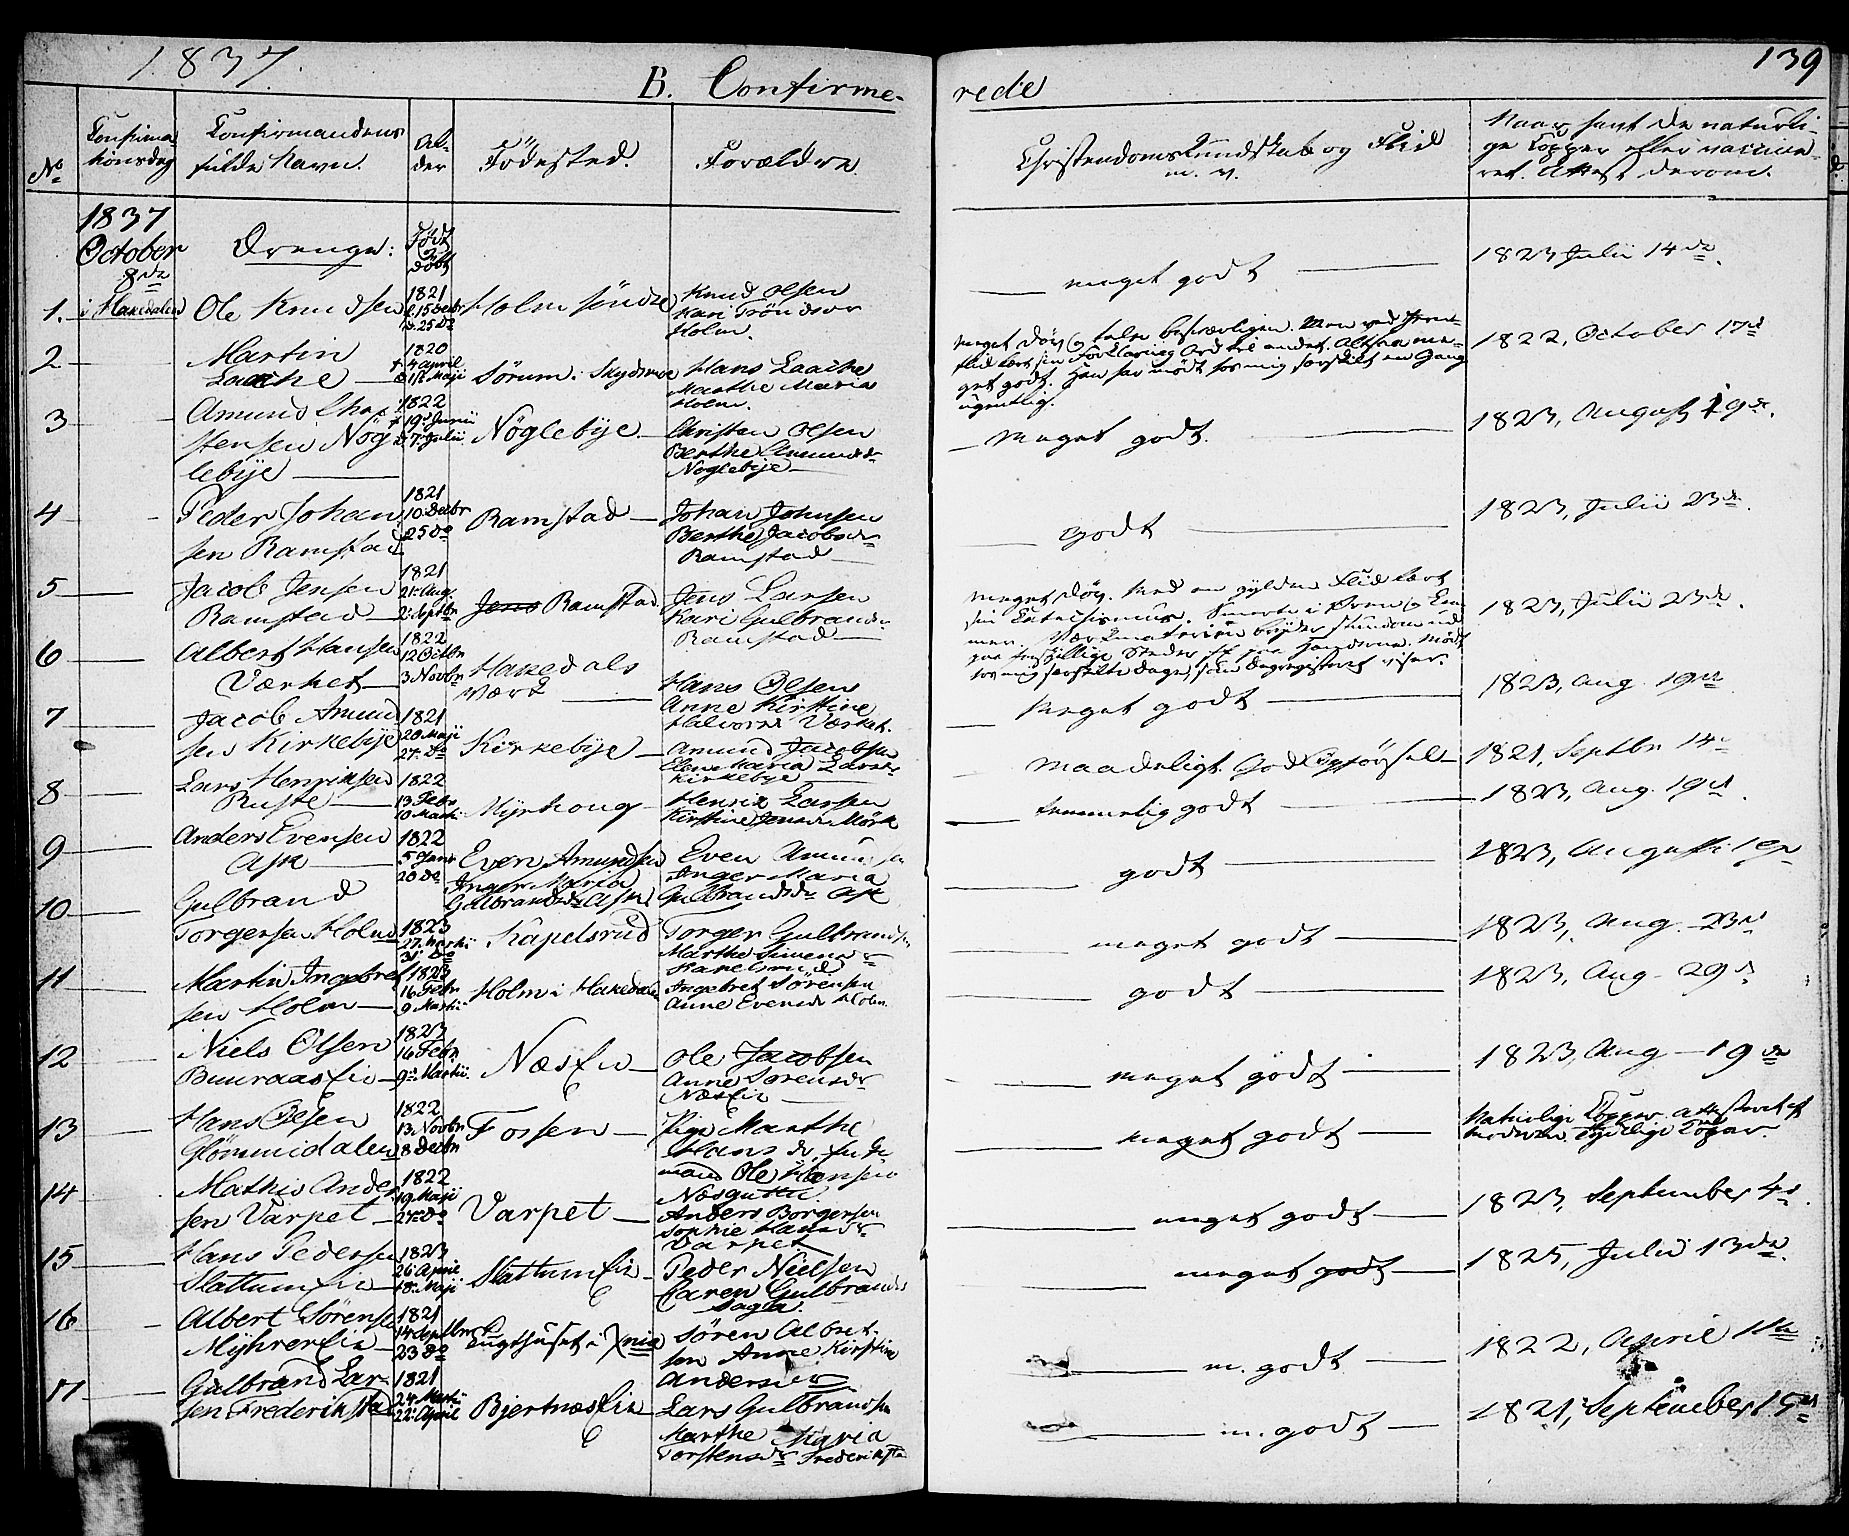 1837.
B. Confirme-
rede
139
No
Confirma-
tionsdag
Confirmandens
fulde Navn.
Al-
der
Födested.
Forældre.
Christendoms Kundskab og Flid
m. v.
Naar havt de naturli-
ge Kopper eller vaccine-
ret. Attest derom.
1837
October
8de
i Hakedalen
Drenge:
Födt
Döbt
1.
Ole Knudsen
1821
f. 15 Decbr
d. 25 do
Holm söndre
Knud Olsen
Kari Tröndsdr
Holm.
meget godt
1823 Julii 14de.
2
Martin
Laache
1820
4 April
d 1ste Maji
Sörum i Skydsmoe
Hans Laache
Marthe Maria
Holm.
meget döv og taler besværligen. Men ved
flid lært sin Forklaring Ord til andet. Altsaa me-
get godt. Han har mödt hos mig særskilt en Gang
ugentlig.
1822, October 17de
3
Amund Chri-
stensen Nög-
lebye
1822
19de Junii
d 7 Julii
Nöglebye
Christen Olsen
Berthe Amundsdr
Nöglebye
Meget godt.
1823, August 19de.
4
Peder Johan-
sen Ramstad
1821
10 Decbr
25 do
Ramstad
Johan Johnsen
Berthe Jacobsdr
Ramstad
godt
1823, Julii 23de.
5
Jacob Jensen
Ramstad
1821
21. Aug.
2. Septbr
Jens Ramstad
Jens Larsen
Kari Gulbrandsdr
Ramstad
Meget döv. Med en gylden Flid lært
sin Catechismus.
hos mig særskilte Dage, som Dagregisteret viser.
1823, Julii 23de.
6
Albert Hansen
Værket
1822
12 Octbr
3 Novbr
Hakedals
Værk
Hans Olsen
Anne Kirstine
Halvorsd Værket.
Meget godt
1823, Aug. 19de
7
Jacob Amund-
sen Kirkebye
1821
20 Maji
27. do
Kirkebye
Amund Jacobsen
Elen Maria Larsdr
Kirkebye
Maadeligt. God Opförsel
1821, Septbr 14de
8
Lars Henriksen
Ruste
1822
13 Febr
10 Martii
Myrhoug
Henrik Larsen
Kirstine Jensdr Mörk
temmelig godt
1823, Aug. 19de.
9
Anders Evensen
Ask
1822
5 Janr
20 do
Even Amundsen
Inger Maria
Gulbrandsdr Ask
Even Amundsen
Inger Maria
Gulbrandsdr Ask
godt
1823, August 19de
10
Gulbrand
Torgersen Holm
1823
27. Martii
31 do
Kapelsrud
Torger Gulbrandsen
Marthe Simensdr
Kapelsrud
meget godt
1823, Aug. 23de
11
Martin Ingebret-
sen Holm
1823
16 Febr
9 Martii
Holm i Hakedalen
Ingebret Sörensen
Anne Evensdr Holm
godt
1823, Aug. 29de
12
Niels Olsen
Buuraaseie
1823
16 Febr
9de Martii.
Næseie
Ole Jacobsen
Anne Sorensdr
Næseie
meget godt
1823, Aug 19de
13
Hans Olsen
Glömmidalen
1822
13. Novbr
8 Decbr
Fossen
Pige Marthe
Hansdr, Enke-
mand Ole Hansen
meget godt
Naturlige Kopper attesteret af
Moderen. Tydelige Kopar.
14
Mathis Ander-
sen Varpet
1822
19. Maji
27. do
Varpet
Anders Borgersen
Sophie Hansdr
Varpet
meget godt
1823, September 4de
15
Hans Pedersen
Slattumeie
1823
26 April
18. Maji
Slattumeie
Peder Nielsen
Karen Gulbrandsdr
meget godt
1825, Julii 13de.
16
Albert Sörensen
Myhrereie
1821
14 Septbr
23 do
Tugthuset i Xnia
Sören Albret-
sen Anne Kirstine
Andersdr
m. godt
1822, April 11te
17
Gulbrand Lar-
sen Frederikstad
1821
24 Martii
22. April
Bjertnæseie
Lars Gulbrandsen
Marthe Maria
Torstensdr Frederikstad
m. godt
1821, September 19de